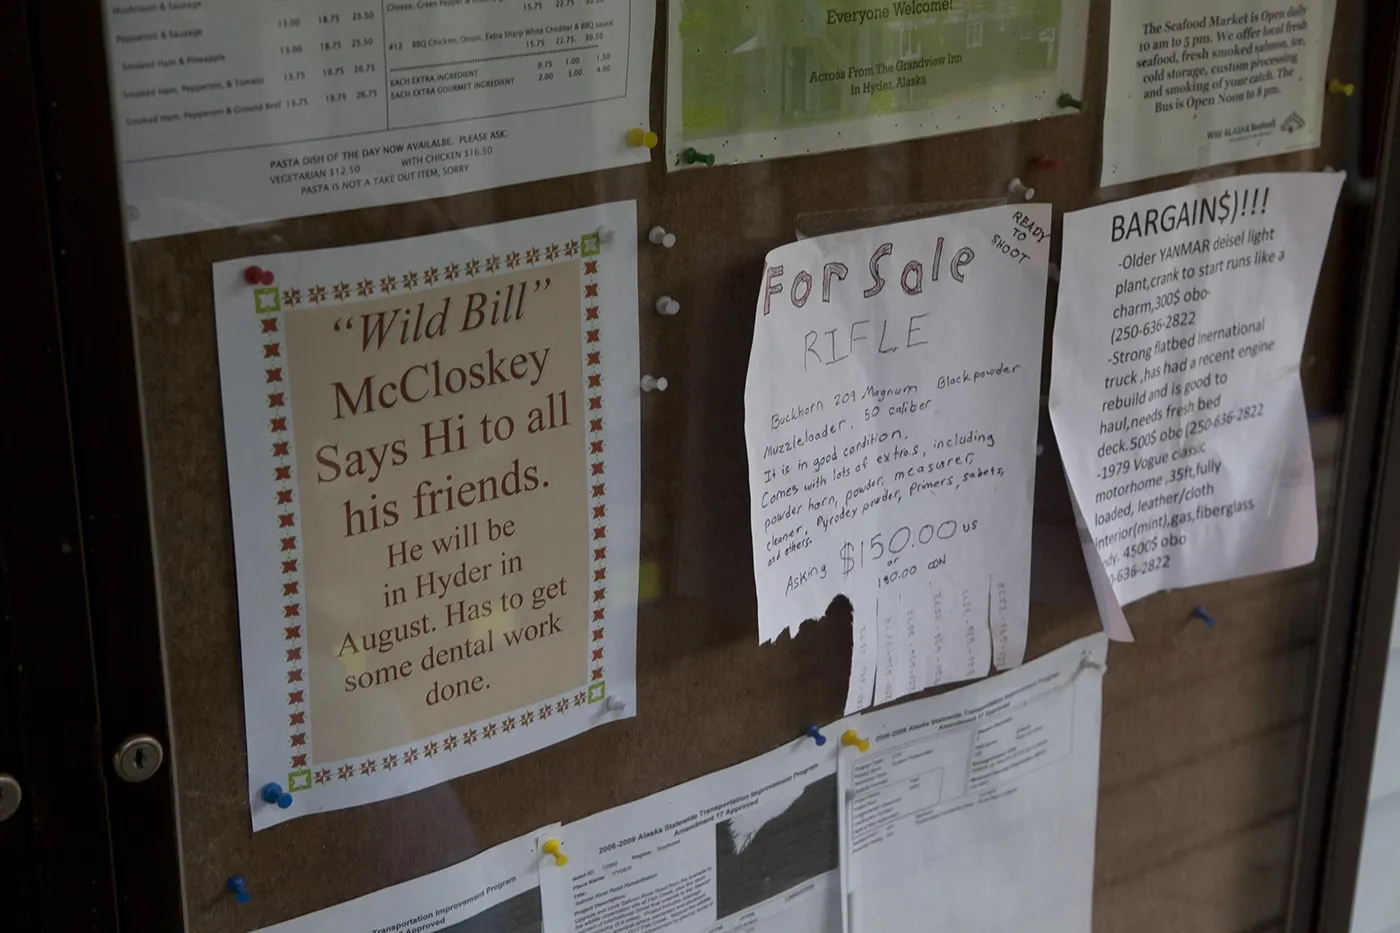 Mushroom & Sausage 13.00 18.75 25.50
Pepperoni & Sausage 13.00 18.75 25.50
Smoked Ham & Pineapple
Smoked Ham, Pepperoni, & Tomato 13.75 19.75 26.75
Smoked Ham, Pepperoni & Ground Beef 13.75 19.75 26.75
Cheese, Green Pepper &
15.75 22.75
#12 BBQ Chicken, Onion, Extra Sharp White Cheddar & BBQ sauce
15.75 22.75 30.50
EACH EXTRA INGREDIENT 0.75 1.00 1.50
EACH EXTRA GOURMET INGREDIENT 2.00 3.00 4.00
PASTA DISH OF THE DAY NOW AVAILALBE. PLEASE ASK.
VEGETARIAN $12.50 WITH CHICKEN $16.50
PASTA IS NOT A TAKE OUT ITEM, SORRY
Everyone Welcome!
Across From The Grandview Inn
In Hyder, Alaska
The Seafood Market is Open daily
10 am to 5 pm. We offer local fresh
seafood, fresh smoked salmon, ice,
cold storage, custom processing
and smoking of your catch. The
Bus is Open Noon to 8 pm.
Wild ALASKA Seafood
"Wild Bill"
McCloskey
Says Hi to all
his friends.
He will be
in Hyder in
August. Has to get
some dental work
done.
READY
TO
SHOOT
For Sale
RIFLE
Buckhorn 209 Magnum Blackpowder
Muzzleloader. 50 caliber
It is in good condition.
Comes with lots of extras, including
powder horn, powder measurer,
cleaner, Pyrodex powder, primers, sabets,
and others.
Asking $150.00 US
or
190.00 CDN
BARGAIN$)!!!
-Older YANMAR deisel light
plant,crank to start runs like a
charm,300$ obo-
(250-636-2822
-Strong flatbed inernational
truck ,has had a recent engine
rebuild and is good to
haul,needs fresh bed
deck.500$ obo (250-636-2822
-1979 Vogue classic
motorhome ,35ft,fully
loaded, leather/cloth
interior(mint),gas,fiberglass
ody. 4500$ obo
0-636-2822
Transportation Improvement Program
Amendment 17 Approved
2006-2009 Alaska Statewide Transportation Improvement Program
Amendment 17 Approved
Place Name: HYDER
Region: Southeast
Title:
Salmon River Road Rehabilitation
Project Description:
2006-2009 Alaska Statewide Transportation Improvement Program
Amendment 17 Approved